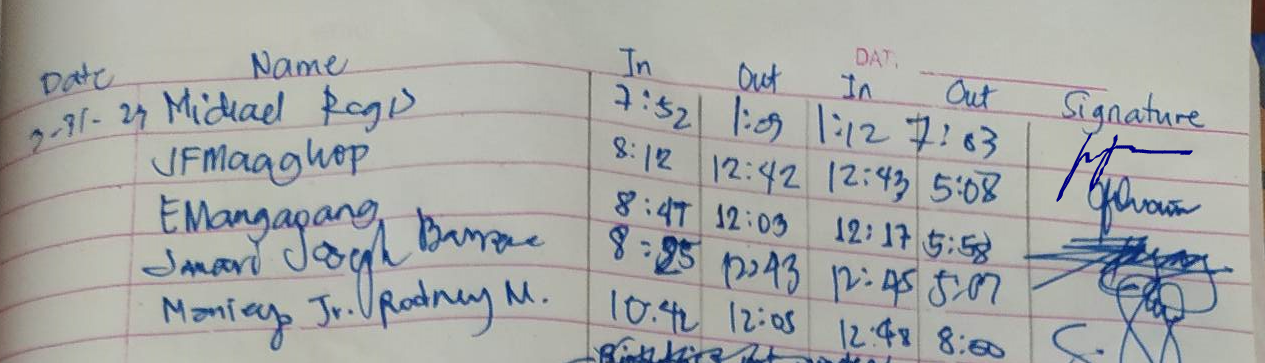 DAT.
Date Name In Out In Out Signature
Michael Regis 7:52 1:09 1:12 7:03
JFMaaghop 8:12 12:42 12:43 5:08
EMangapang 8:47 12:03 12:17 5:58
Joseph 8:25 12:43 12:45 5:07
Jr. Rodney M. 10:42 12:05 12:48 8:00